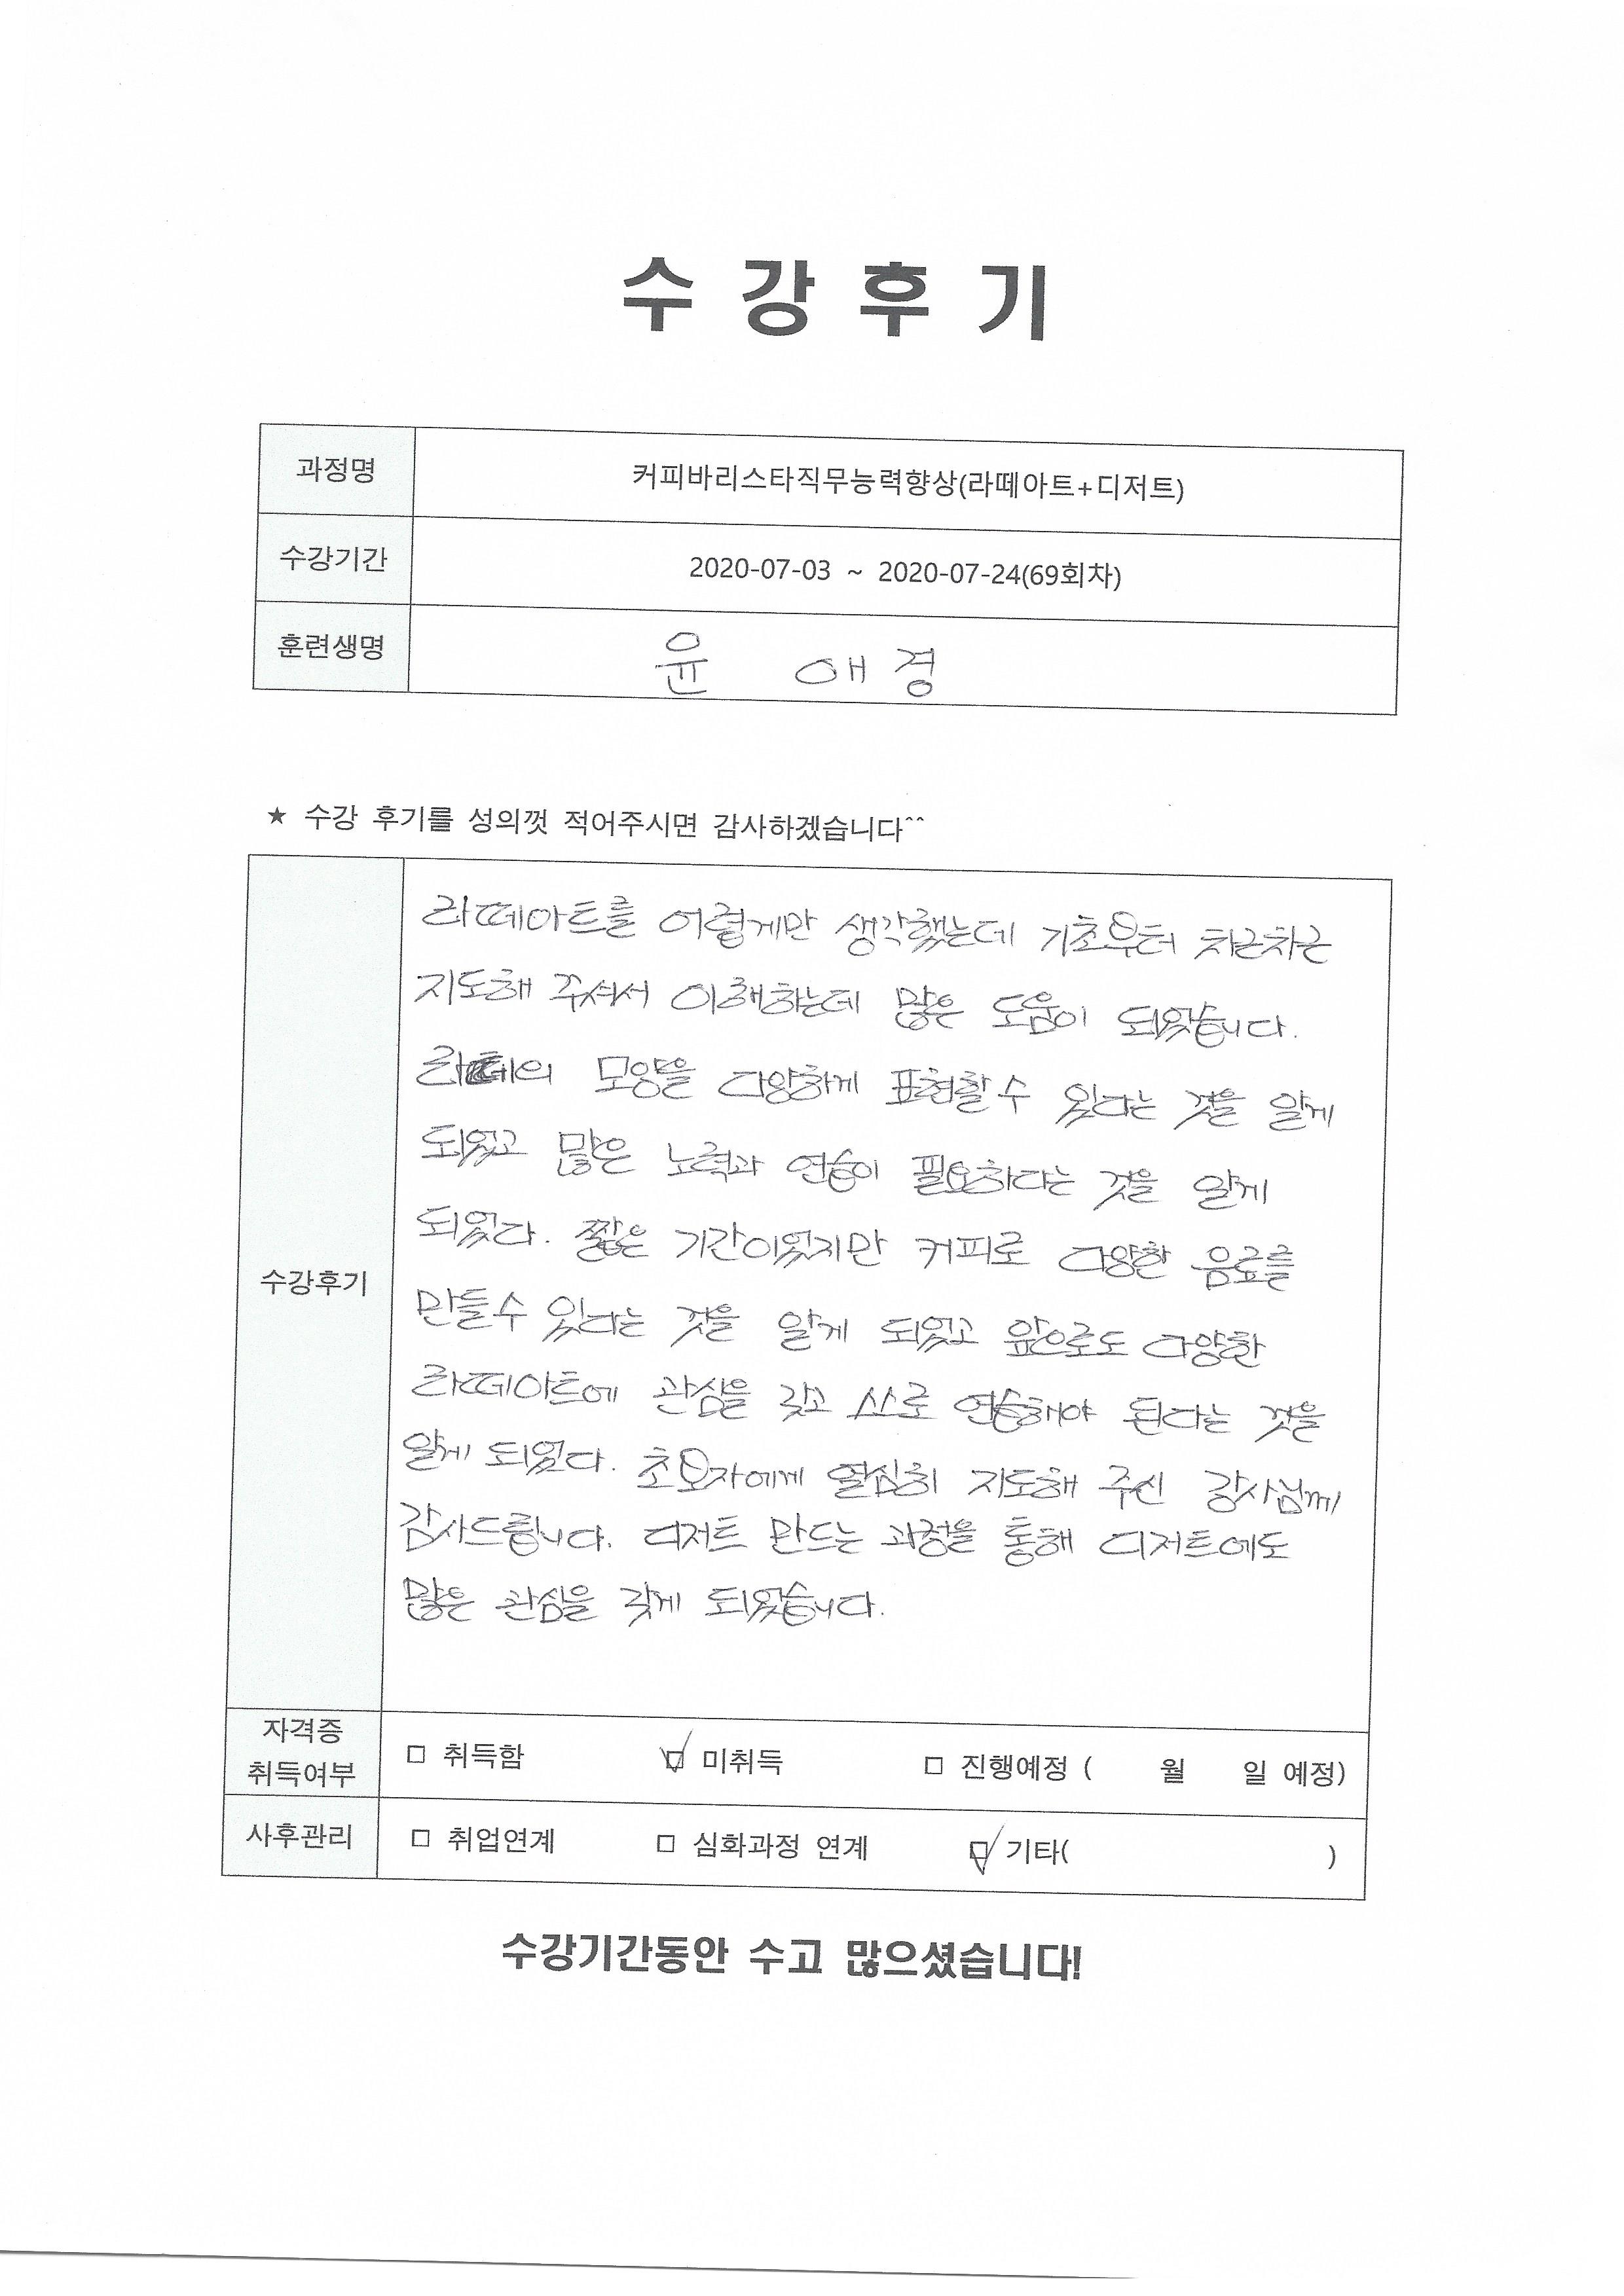 수강후기
과정명 커피바리스타직무능력향상(라떼아트+디저트)
수강기간 2020-07-03 ~ 2020-07-24(69회차)
훈련생명 윤 애경
★ 수강 후기를 성의껏 적어주시면 감사하겠습니다^^
수강후기
라떼아트를 어렵게만 생각했는데 기초부터 차근차근
지도해 주셔서 이해하는데 많은 도움이 되었습니다.
라떼의 모양을 다양하게 표현할수 있다는 것을 알게
되었고 많은 노력과 연습이 필요하다는 것을 알게
되었다. 짧은 기간이었지만 커피로 다양한 음료를
만들수 있다는 것을 알게 되었고 앞으로도 다양한
라떼아트에 관심을 갖고 스스로 연습해야 된다는 것을
알게 되었다. 초보자에게 열심히 지도해 주신 강사님께
감사드립니다. 디저트 만드는 과정을 통해 디저트에도
많은 관심을 갖게 되었습니다.
자격증
취득여부 □ 취득함 ☑ 미취득 □ 진행예정 ( 월 일 예정)
사후관리 □ 취업연계 □ 심화과정 연계 ☑ 기타( )
수강기간동안 수고 많으셨습니다!